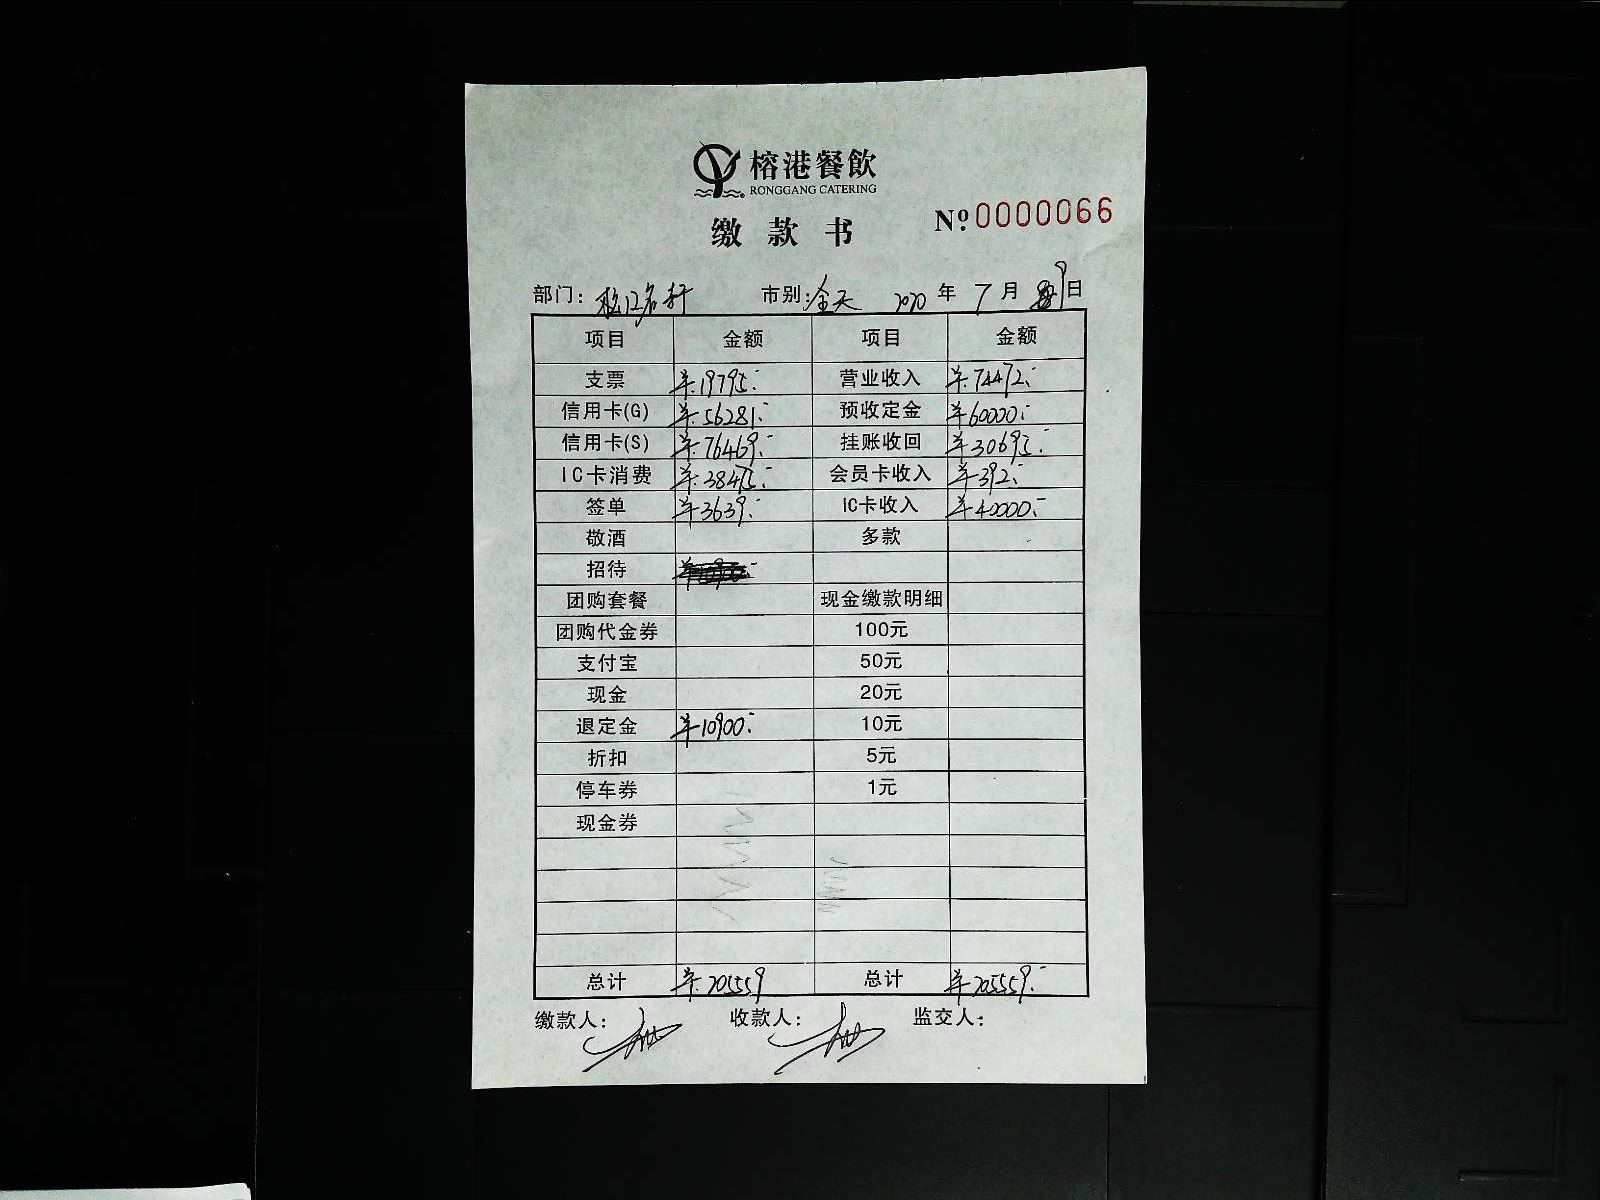 榕港餐飲
RONGGANG CATERING
缴款书
№:0000066
部门: 松江名轩 市别: 全天 2020 年 7 月 9 日
项目 金额 项目 金额
支票 ¥:19795:- 营业收入 ¥:74472:-
信用卡(G) ¥:56281:- 预收定金 ¥60000:-
信用卡(S) ¥:76469:- 挂账收回 ¥30695:-
IC卡消费 ¥:38475:- 会员卡收入 ¥392:-
签单 ¥3639:- IC卡收入 ¥40000:-
敬酒 多款
招待
团购套餐 现金缴款明细
团购代金券 100元
支付宝 50元
现金 20元
退定金 ¥10900:- 10元
折扣 5元
停车券 1元
现金券
总计 ¥:205559 总计 ¥205559:-
缴款人: 收款人: 监交人: